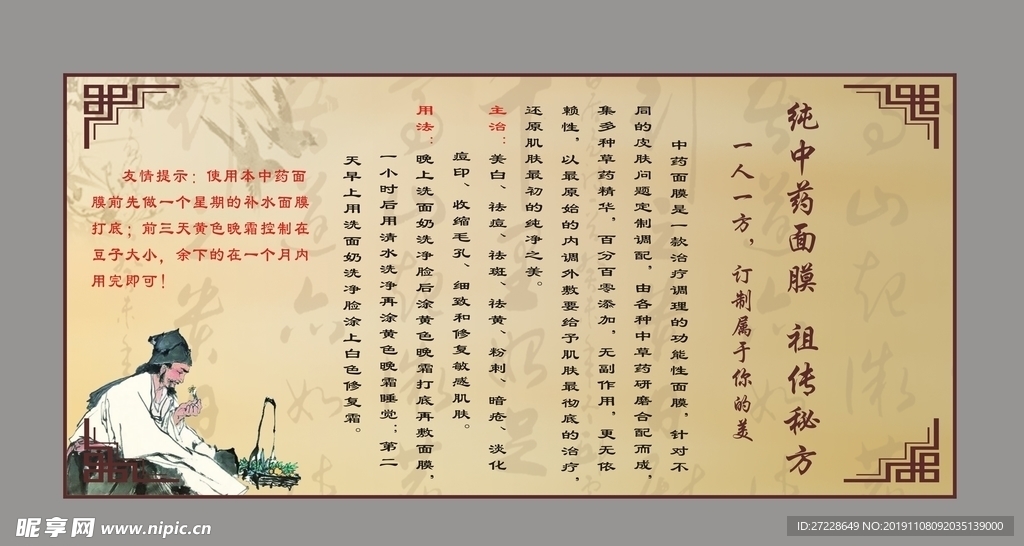 纯中药面膜 祖传秘方
一人一方，订制属于你的美
中药面膜是一款治疗调理的功能性面膜，针对不
同的皮肤问题定制调配，由各种中草药研磨合配而成，
集多种草药精华，百分百零添加，无副作用，更无依
赖性，以最原始的内调外敷要给予肌肤最彻底的治疗，
还原肌肤最初的纯净之美。
主治：美白、祛痘、祛斑、祛黄、粉刺、暗疮、淡化
痘印、收缩毛孔、细致和修复敏感肌肤。
用法：晚上洗面奶洗净脸后涂黄色晚霜打底再敷面膜，
一小时后用清水洗净再涂黄色晚霜睡觉；第二
天早上用洗面奶洗净脸涂上白色修复霜。
友情提示：使用本中药面
膜前先做一个星期的补水面膜
打底；前三天黄色晚霜控制在
豆子大小，余下的在一个月内
用完即可！
昵享网 www.nipic.cn
ID:27228649 NO:20191108092035139000